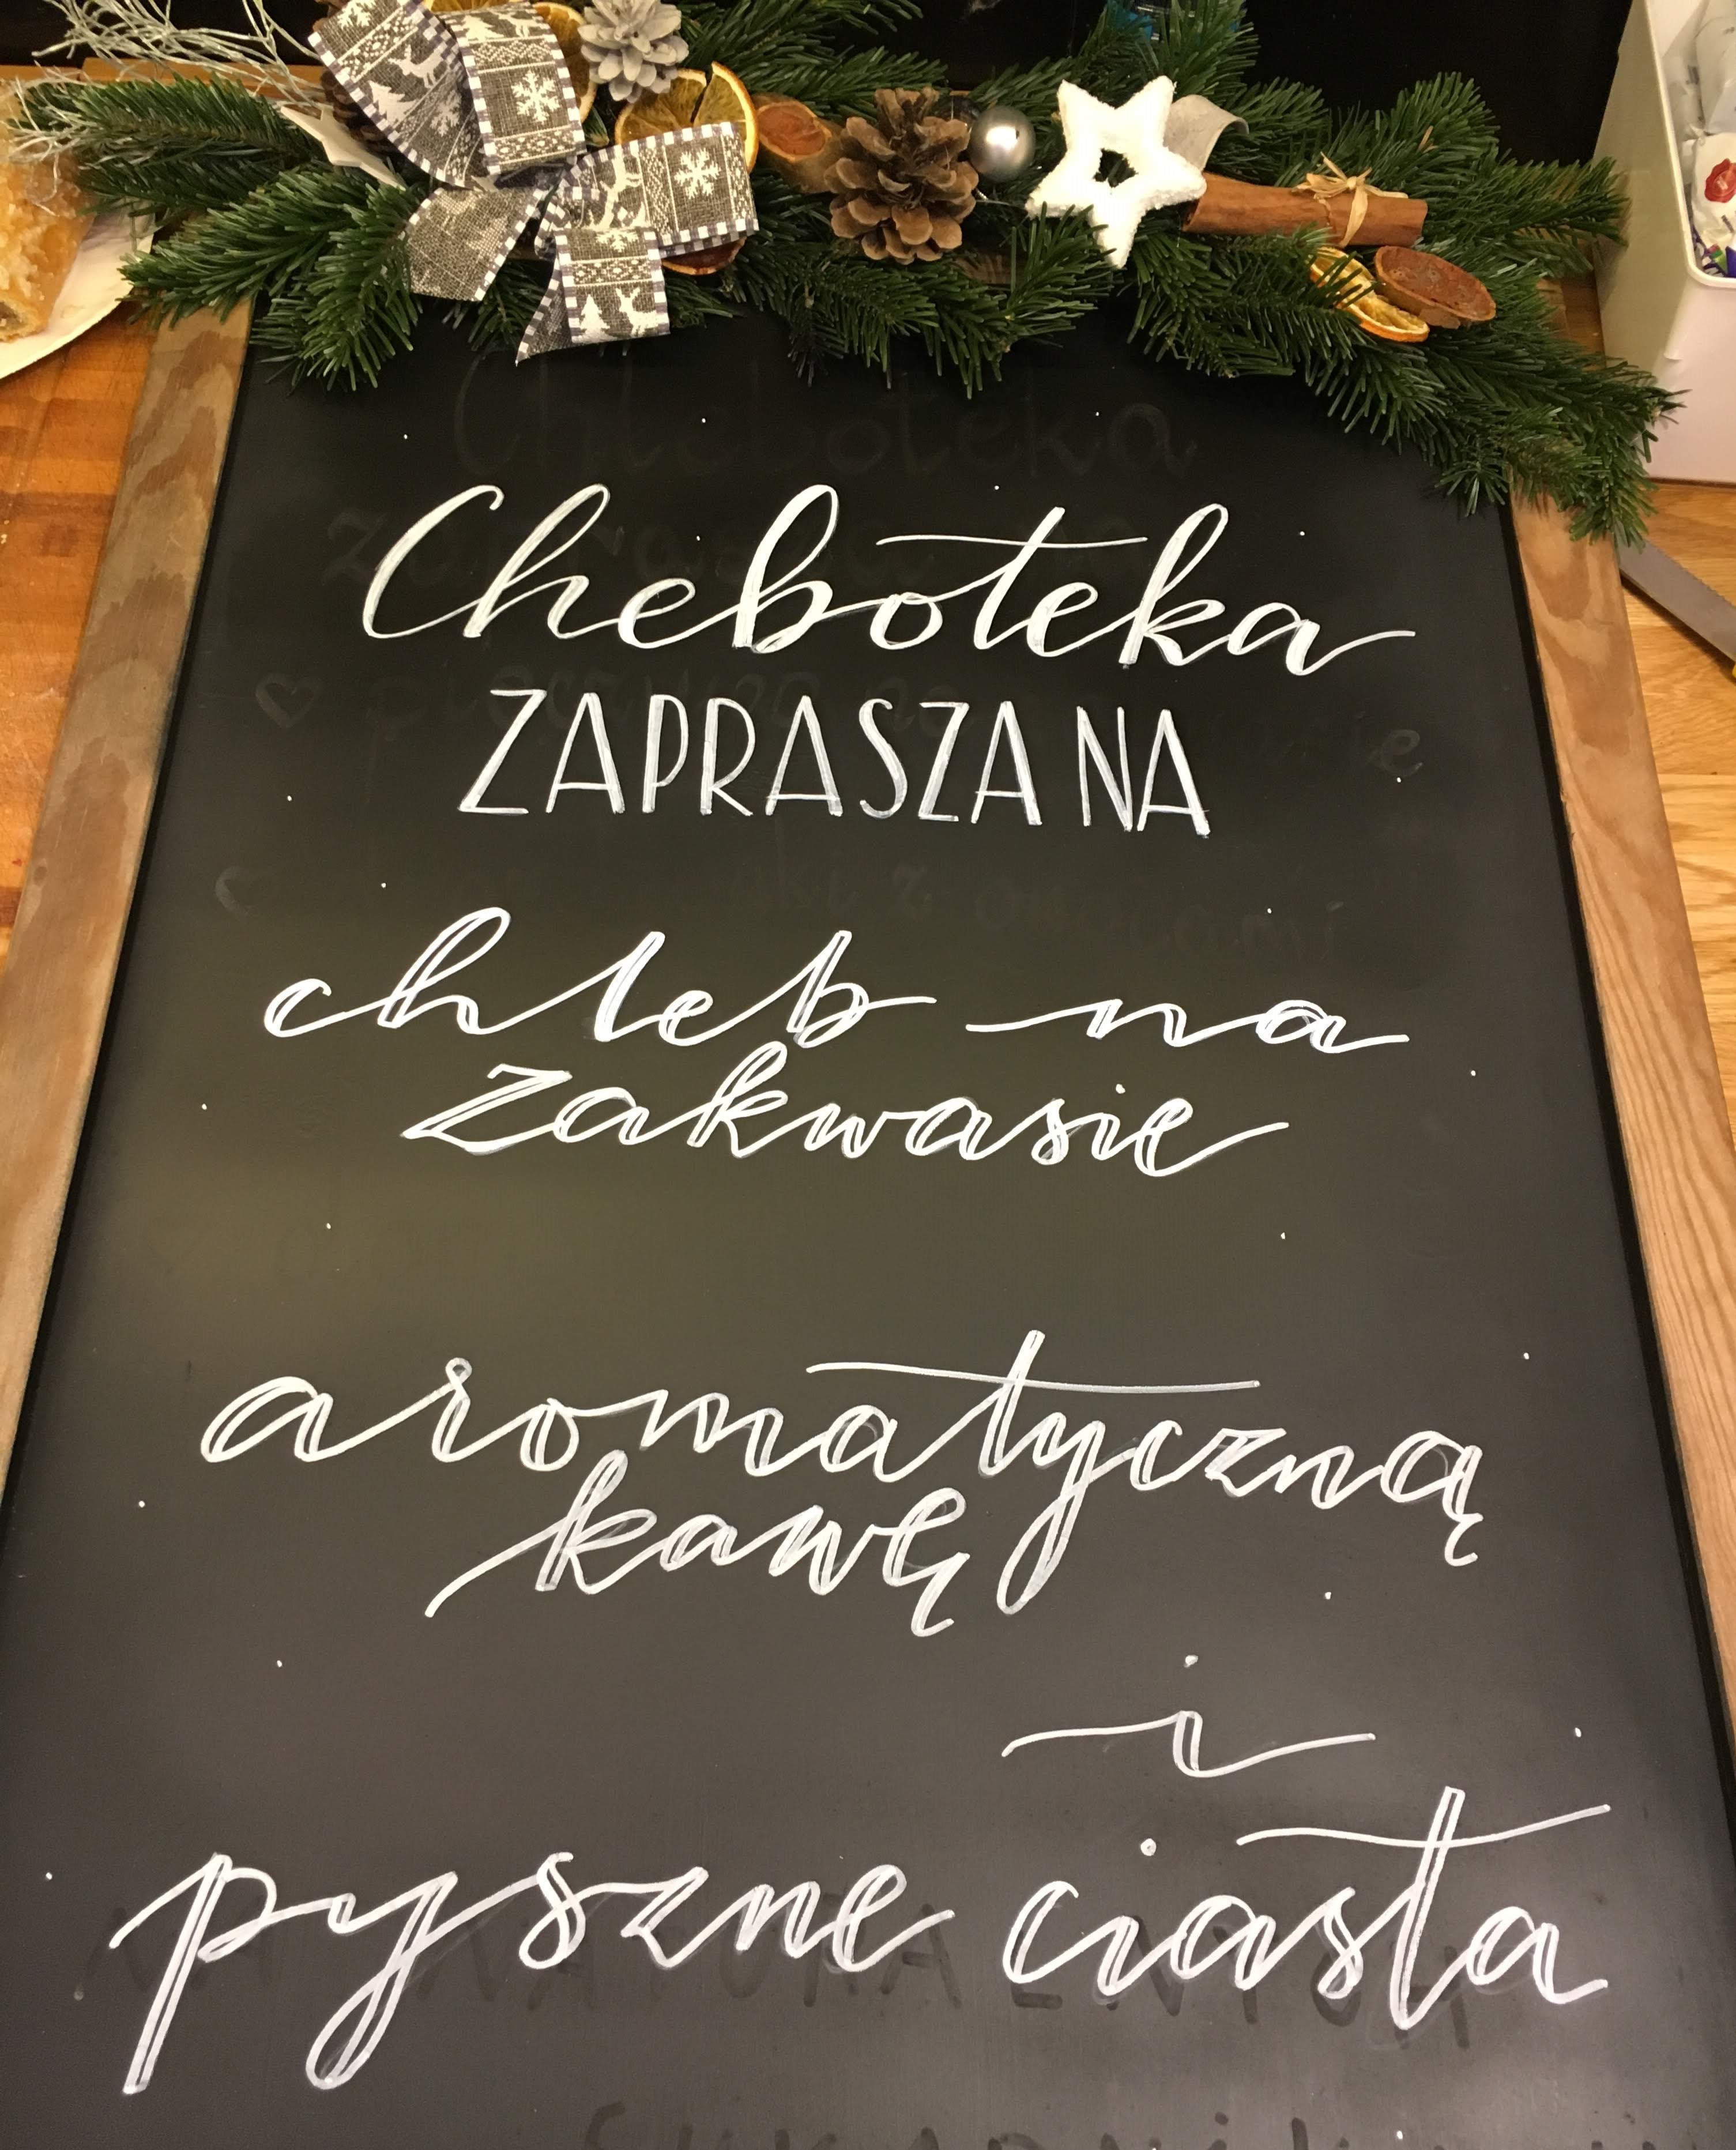 Cheboteka
ZAPRASZA NA
chleb na
zakwasie
aromatyczną
kawę
i
pyszne ciasta